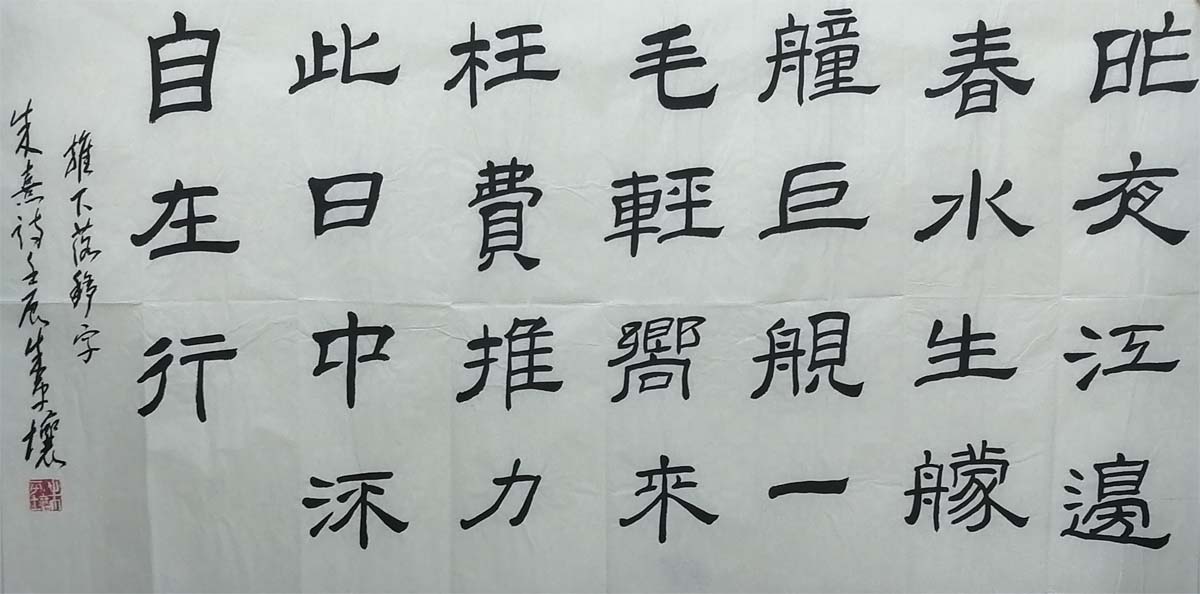 昨夜江邊
春水生艨
艟巨舰一
毛輕嚮來
枉費推力
此日中流
自在行
推下落移字
朱熹诗壬辰朱壤